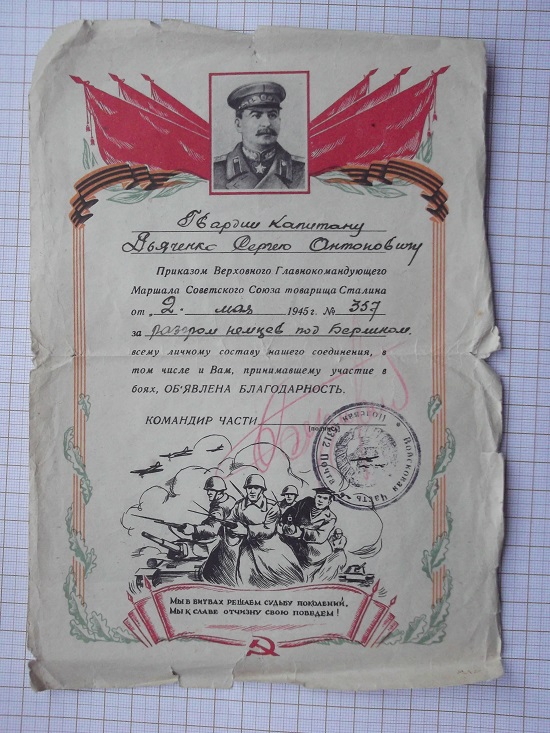 Гвардии капитану
Дьяченко Сергею Антоновичу
Приказом Верховного Главнокомандующего
Маршала Советского Союза товарища Сталина
от „2. мая 1945 г. № 357
за разгром немцев под Берлином.
всему личному составу нашего соединения, в
том числе и Вам, принимавшему участие в
боях, ОБ'ЯВЛЕНА БЛАГОДАРНОСТЬ.
КОМАНДИР ЧАСТИ
(подпись)
Войсковая Часть Полевая
МЫ В БИТВАХ РЕШАЕМ СУДЬБУ ПОКОЛЕНИЙ,
МЫ К СЛАВЕ ОТЧИЗНУ СВОЮ ПОВЕДЕМ!